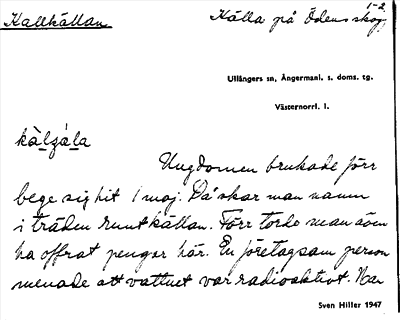 Kallkällan
Källa på Ödens skog,
1-2
Ullångers sn, Ångermanl. s. doms. tg.
Västernorrl. l.
kàlʒála
Ungdomen brukade förr
bege sig hit 1 maj. Då skar man namn
i träden runt källan. Förr torde man även
ha offrat pengar här. En företagsam person
menade att vattnet var radioaktivt. Nar
Sven Hiller 1947